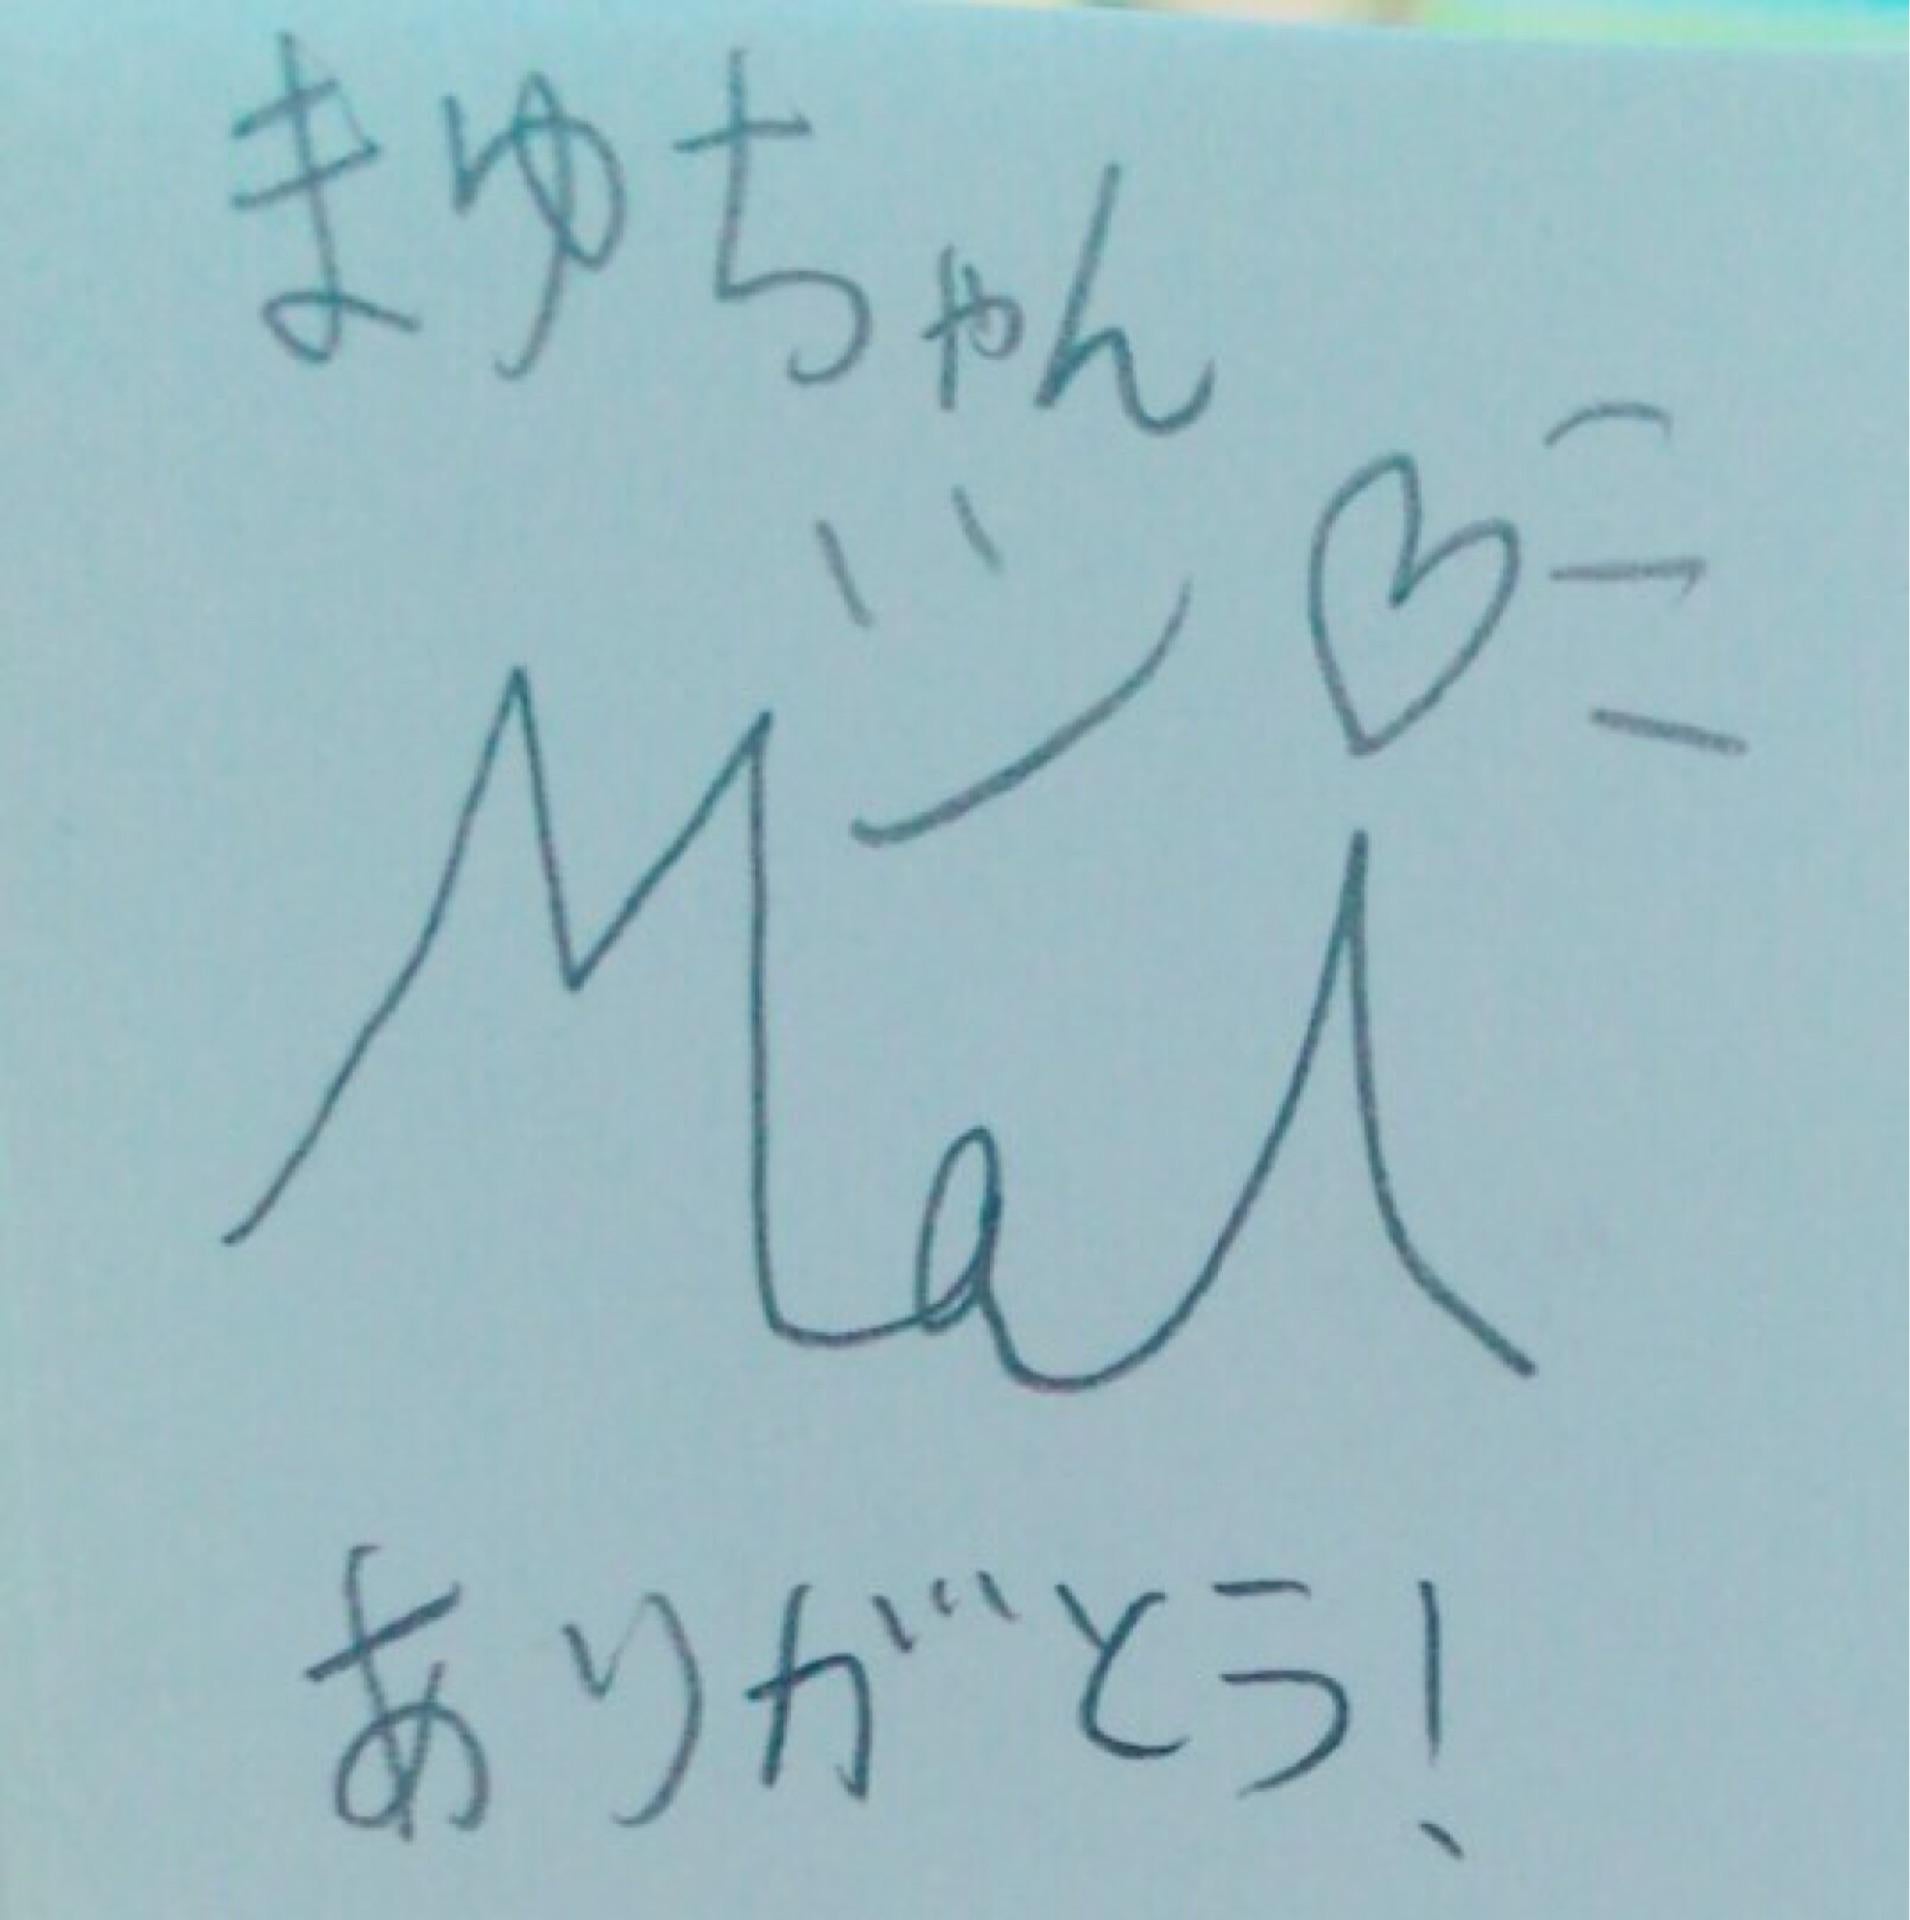 まゆちゃん
Mai
ありがとう!